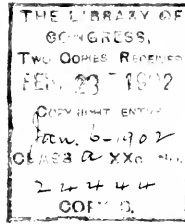 THE LIBRARY OF
CONGRESS,
TWO COPIES RECEIVED
FEB. 23 1902
COPYRIGHT ENTRY
Jan. 6-1902
CLASS a XXc No.
24444
COPY